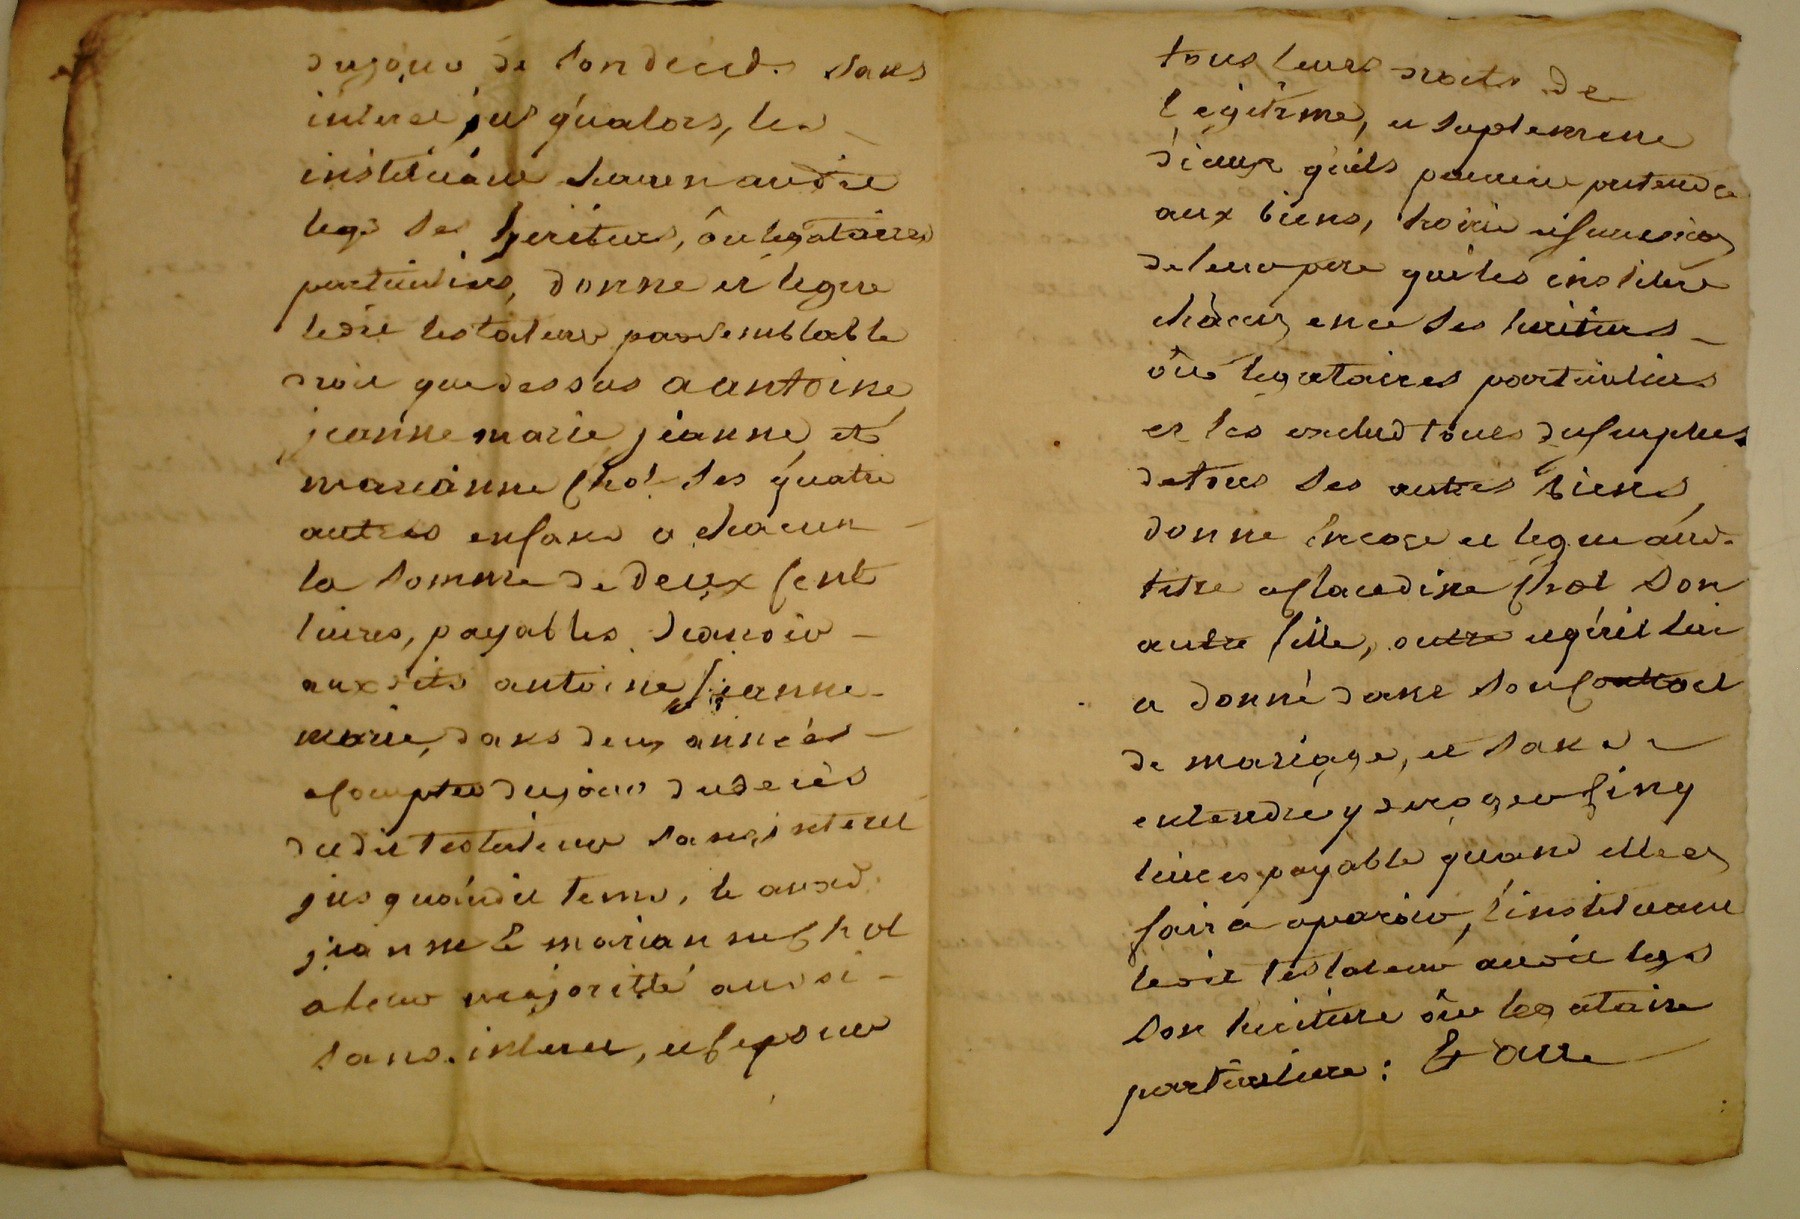 du jour de son deced. sans
interet jus qu'alors, les
instituant chacun audit
legs ses heritiers, ôu legataires
particuliers, donne et legue
ledit testateur par semblable
droit que dessus a antoine
jeanne marie jeanne, et
marianne Chol ses quatre
autres enfans a chacun
la somme de deux Cent
livres, payables scavoir
auxdits antoine jeanne
marie, dans deux années
a Compter du jour du decès
dudit testateur sans interet
jus qu'audit tems, & auxd.
jeanne & marianne Chol
a leur majoritté aussi
sans interet, et ce pour
tous leurs droits de
legitime, et suplement
d'iceux qu'ils peuvent pretendre
aux biens, hoirie et succession
de leur pere qui les institue
chacun en ce ses heritiers
ôu legataires particuliers
et les exclud tous du surplus
de tous ses autres biens,
donne Encore et legue aud.
titre a Claudine Chol son
autre fille, outre ce qu'il lui
a donné dans son Contract
de mariage, et sans
entendre y deroger Cinq
livres payable quand elle en
faira aparoir, l'instituant
ledit testateur audit legs
son heritiere ôu legataire
particuliere : & au